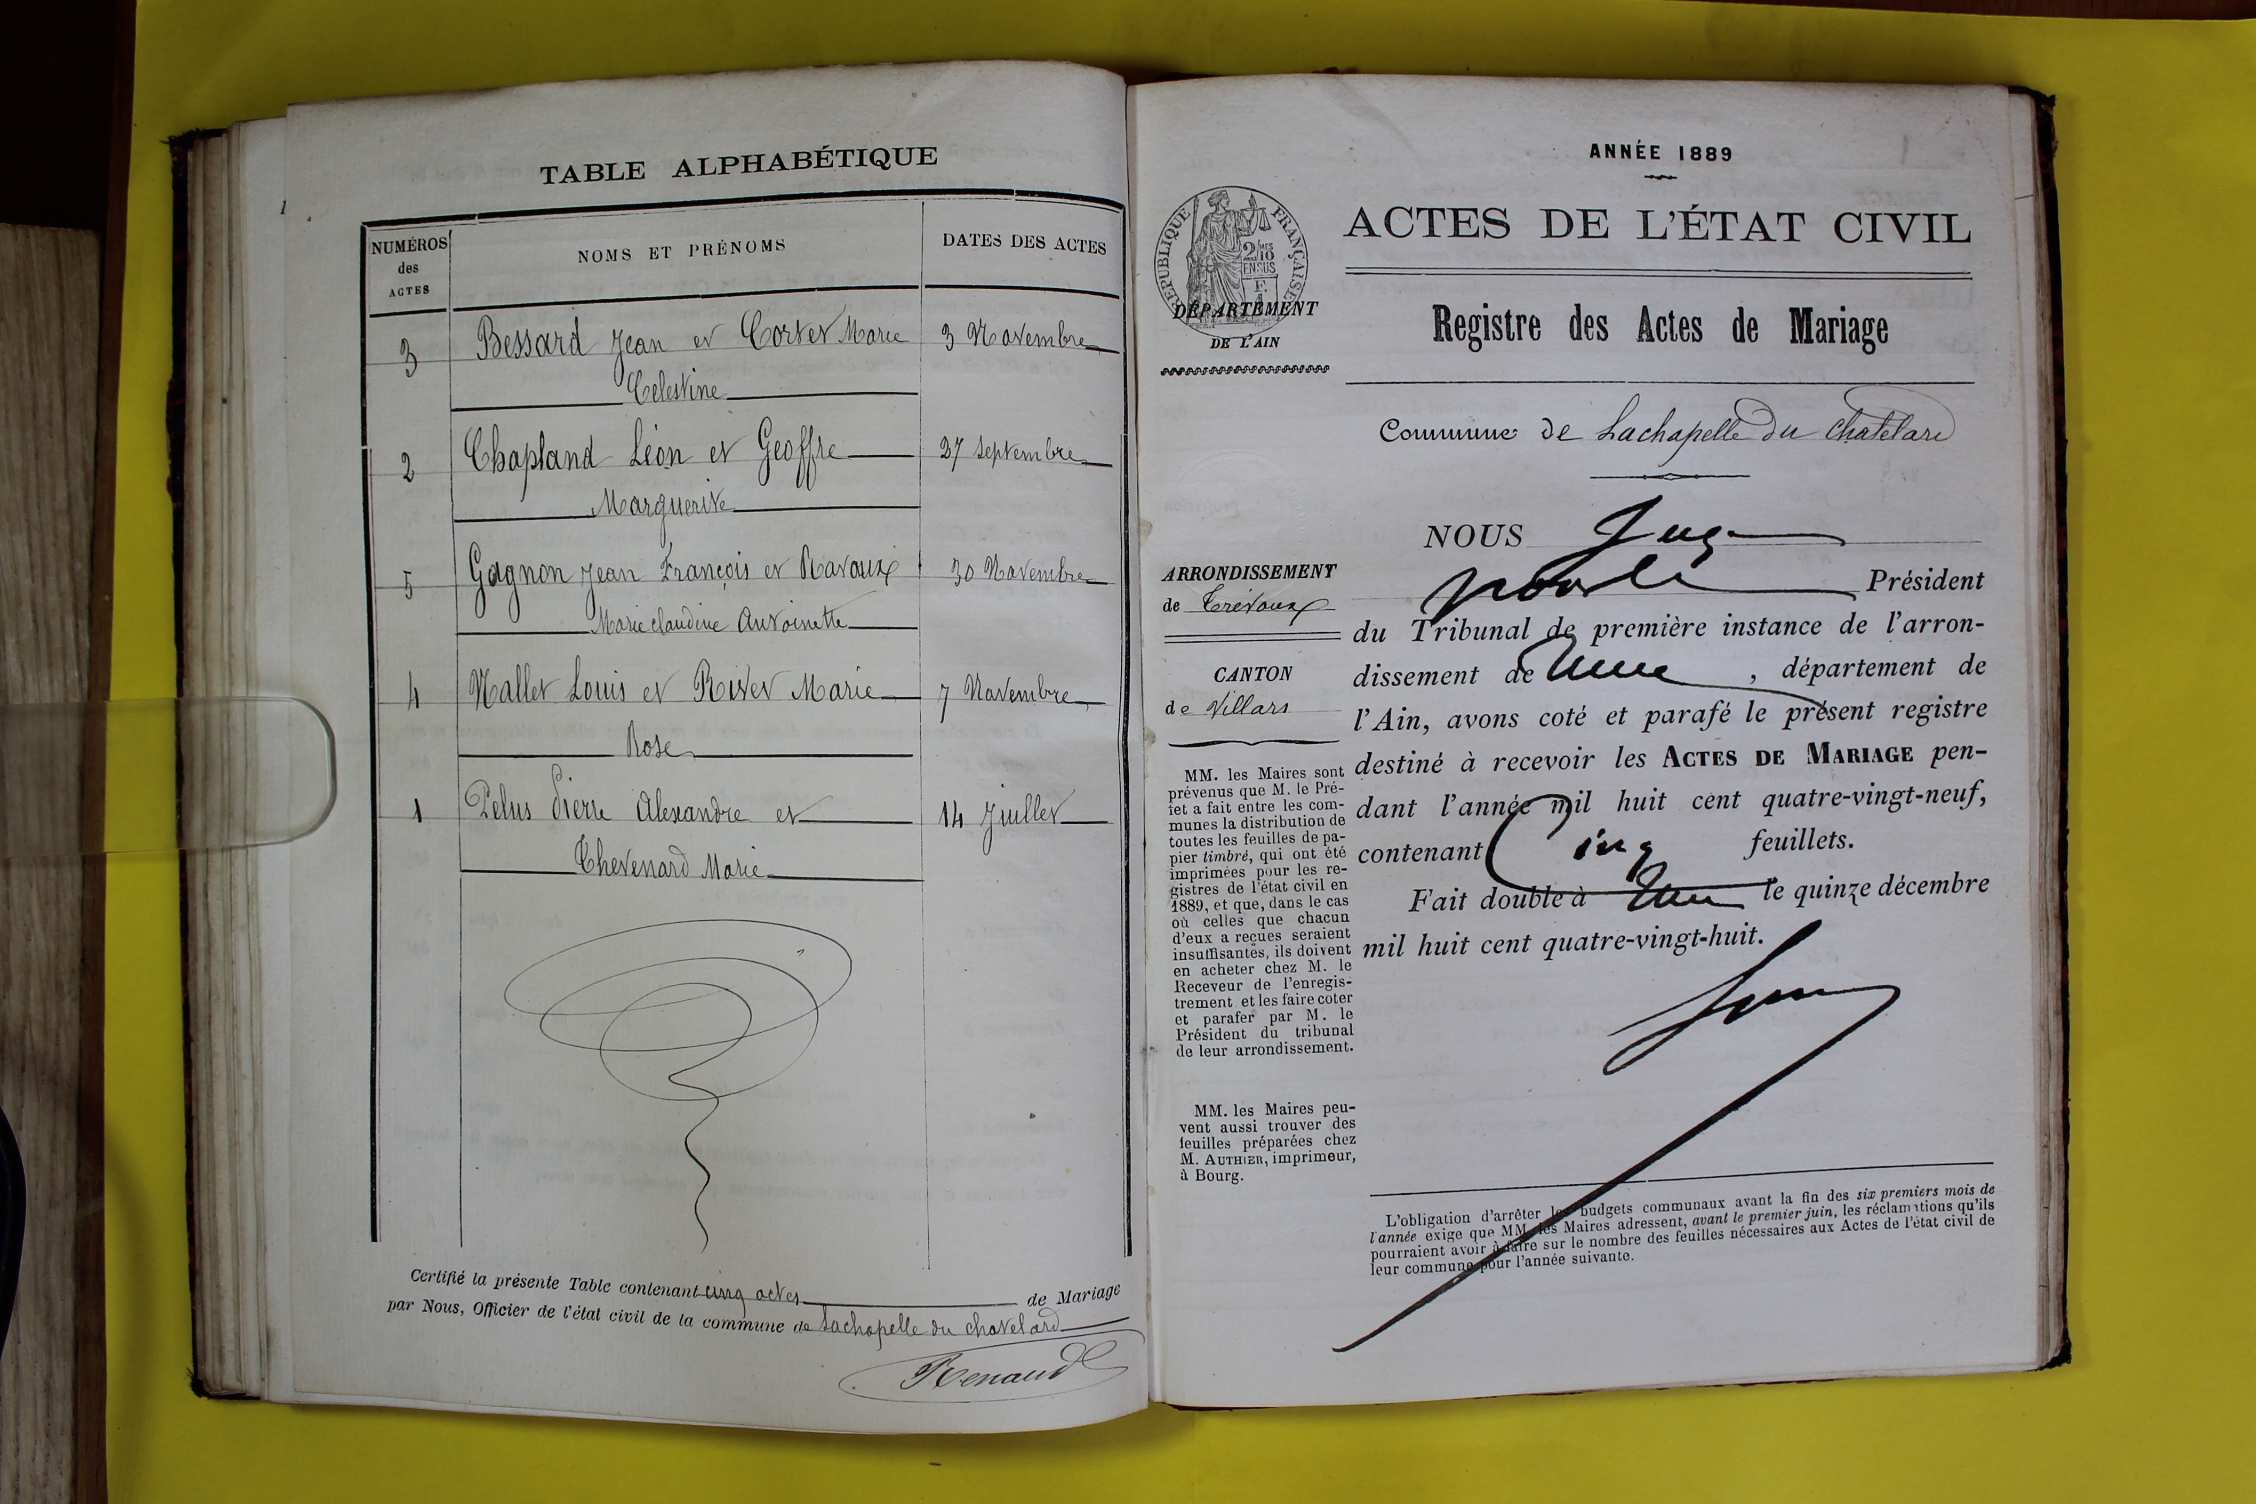 TABLE ALPHABÉTIQUE
1
NUMÉROS
des
ACTES
NOMS ET PRÉNOMS
DATES DES ACTES
3 Bessard Jean et Cortet Marie 3 Novembre
Célestine
2 Chapland Léon et Geoffre 27 Septembre
Marguerite
5 Gagnon Jean François et Ravoux 30 Novembre
Marie claudine Antoinette
4 Mallet Louis et Rivet Marie 7 Novembre
Rose
1 Pelus Pierre Alexandre et 14 Juillet
Thevenard Marie
Certifié la présente Table contenant cinq actes de Mariage
par Nous, Officier de l'état civil de la commune de Lachapelle du chatelard
Renaud
ANNÉE 1889
RÉPUBLIQUE FRANÇAISE
2/10
EN SUS
ACTES DE L'ÉTAT CIVIL
DÉPARTEMENT
DE L'AIN
Registre des Actes de Mariage
Commune de Lachapelle du Chatelard
NOUS Juge
pour le Président
ARRONDISSEMENT
de Trévoux
du Tribunal de première instance de l'arron-
dissement de , département de
CANTON
de Villars
l'Ain, avons coté et parafé le présent registre
destiné à recevoir les ACTES DE MARIAGE pen-
dant l'année mil huit cent quatre-vingt-neuf,
contenant Cinq feuillets.
Fait double à le quinze décembre
mil huit cent quatre-vingt-huit.
MM. les Maires sont
prévenus que M. le Pré-
fet a fait entre les com-
munes la distribution de
toutes les feuilles de pa-
pier timbré, qui ont été
imprimées pour les re-
gistres de l'état civil en
1889, et que, dans le cas
où celles que chacun
d'eux a reçues seraient
insuffisantes, ils doivent
en acheter chez M. le
Receveur de l'enregis-
trement et les faire coter
et parafer par M. le
Président du tribunal
de leur arrondissement.
MM. les Maires peu-
vent aussi trouver des
feuilles préparées chez
M. AUTHIER, imprimeur,
à Bourg.
L'obligation d'arrêter les budgets communaux avant la fin des six premiers mois de
l'année exige que MM. les Maires adressent, avant le premier juin, les réclamations qu'ils
pourraient avoir à faire sur le nombre des feuilles nécessaires aux Actes de l'état civil de
leur commune pour l'année suivante.